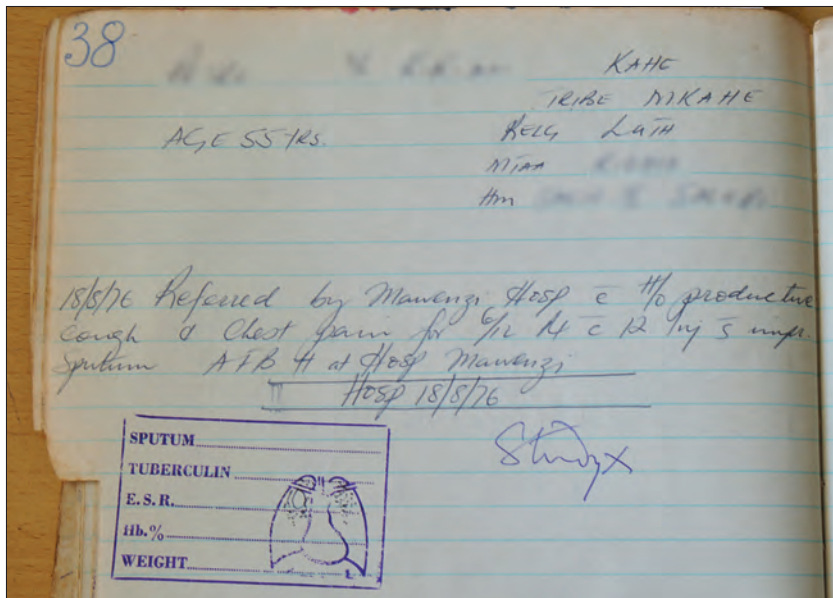 38
KAHE
TRIBE MKAHE
AGE 55 YRS.
RELG LUTH
MTAA
Hm
18/8/76 Referred by Mawenzi Hosp c̄ H/o productive
cough & Chest pain for 6/12 R₄ c̄ 12 Inj s̄ impr.
Sputum AFB # at Hosp Mawenzi
Hosp 18/8/76
SPUTUM
TUBERCULIN
E.S.R.
Hb.%
WEIGHT